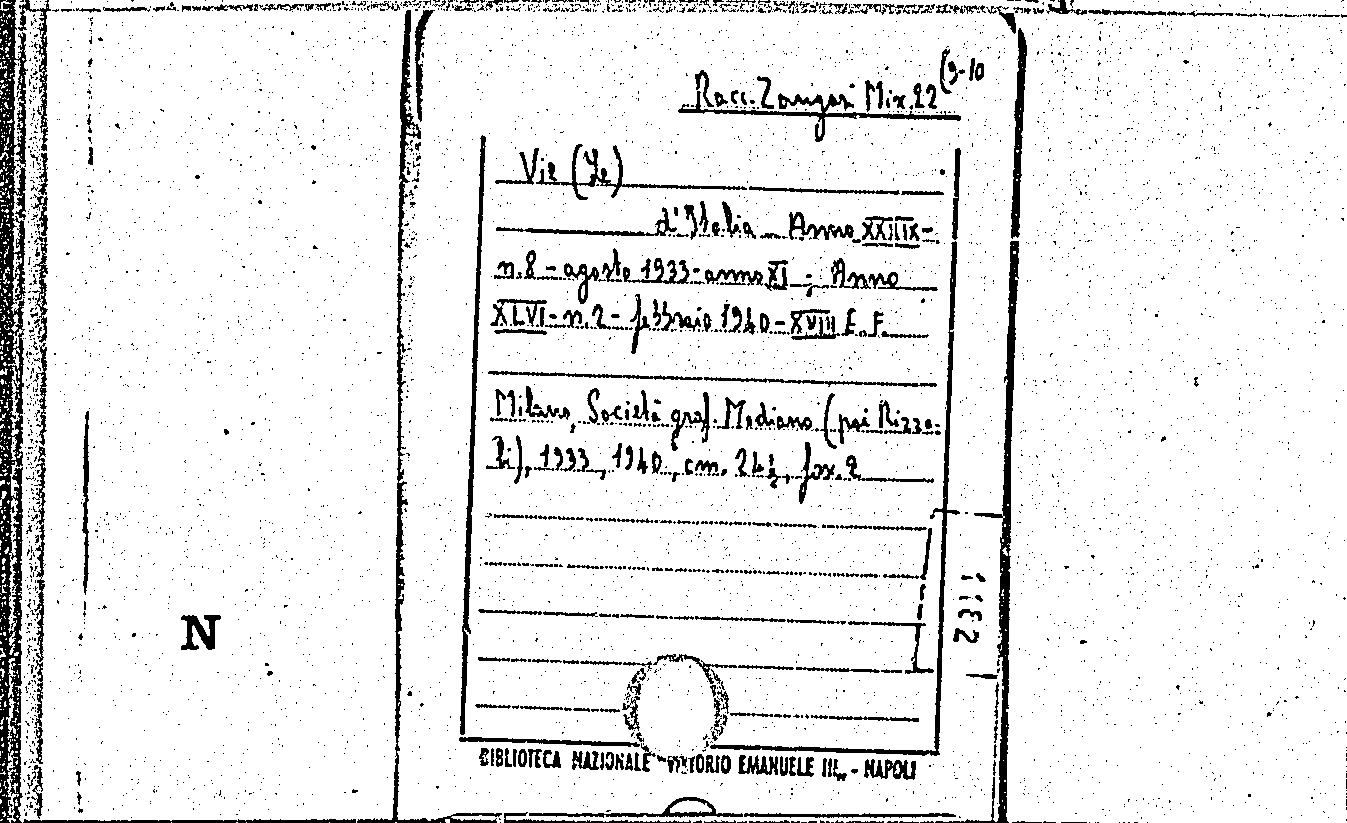 Racc. Zangari Mix. 22 (9-10
Vie (Le)
d'Italia _ Anno XXXIX -
n. 8 - agosto 1933 - anno XI ; Anno
XLVI - n. 2 - febbraio 1940 - XVIII E. F.
Milano, Società graf. Modiano (poi Rizzo-
li), 1933, 1940, cm. 24½, fas. 2
N
BIBLIOTECA NAZIONALE "VITTORIO EMANUELE III" - NAPOLI